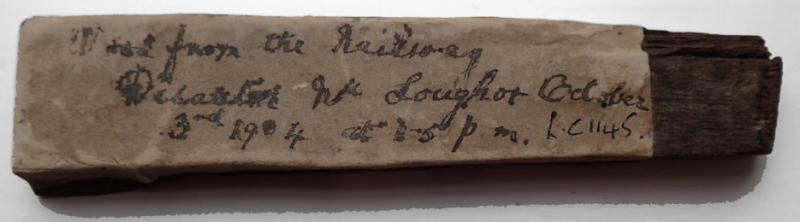 Wood from the Railway
Disaster Nr Loughor October
3rd 1904 at 1-5 p.m. L.C1145.